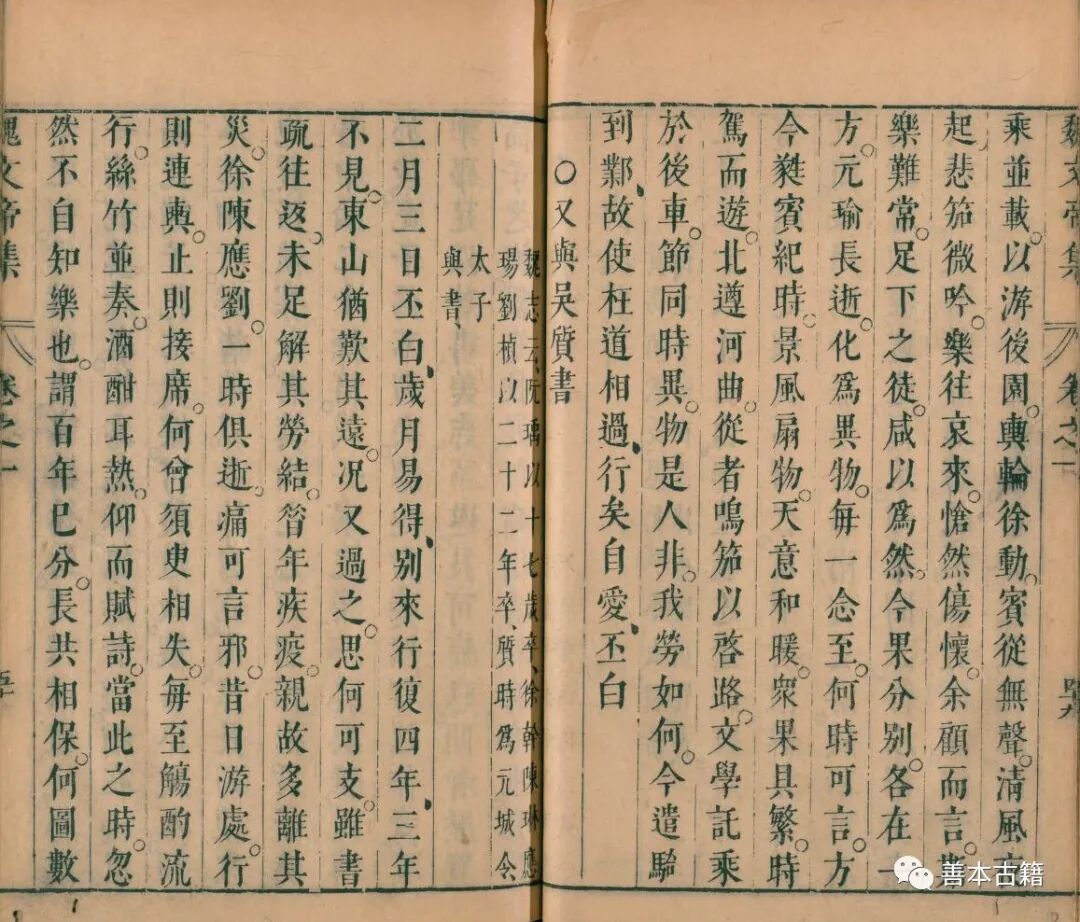 魏文帝集 卷之一
乘並載。以游後園。輿輪徐動。賓從無聲。清風夜
起。悲笳微吟。樂往哀來。愴然傷懷。余顧而言。
樂難常。足下之徒。咸以爲然。今果分別。各在一
方。元瑜長逝。化爲異物。每一念至。何時可言。方
今蕤賓紀時。景風扇物。天意和暖。衆果具繁。時
駕而遊。北遵河曲。從者鳴笳以啓路。文學託乘
於後車。節同時異。物是人非。我勞如何。今遣騎
到鄴、故使枉道相過、行矣自愛、丕白
○又與吳質書
魏志云、阮瑀以十七歲卒、徐幹陳琳應
瑒劉楨以二十二年卒、質時爲元城令
太子
與書、
二月三日丕白、歲月易得、別來行復四年、三年
不見。東山猶歎其遠。况又過之。思何可支。雖書
疏往返。未足解其勞結。昝年疾疫。親故多離其
災。徐陳應劉。一時俱逝。痛可言邪。昔日游處。行
則連輿。止則接席。何曾須臾相失。每至觴酌流
行。絲竹並奏。酒酣耳熱。仰而賦詩。當此之時。忽
然不自知樂也。謂百年已分。長共相保。何圖數
魏文帝集 卷之一 五十
善本古籍